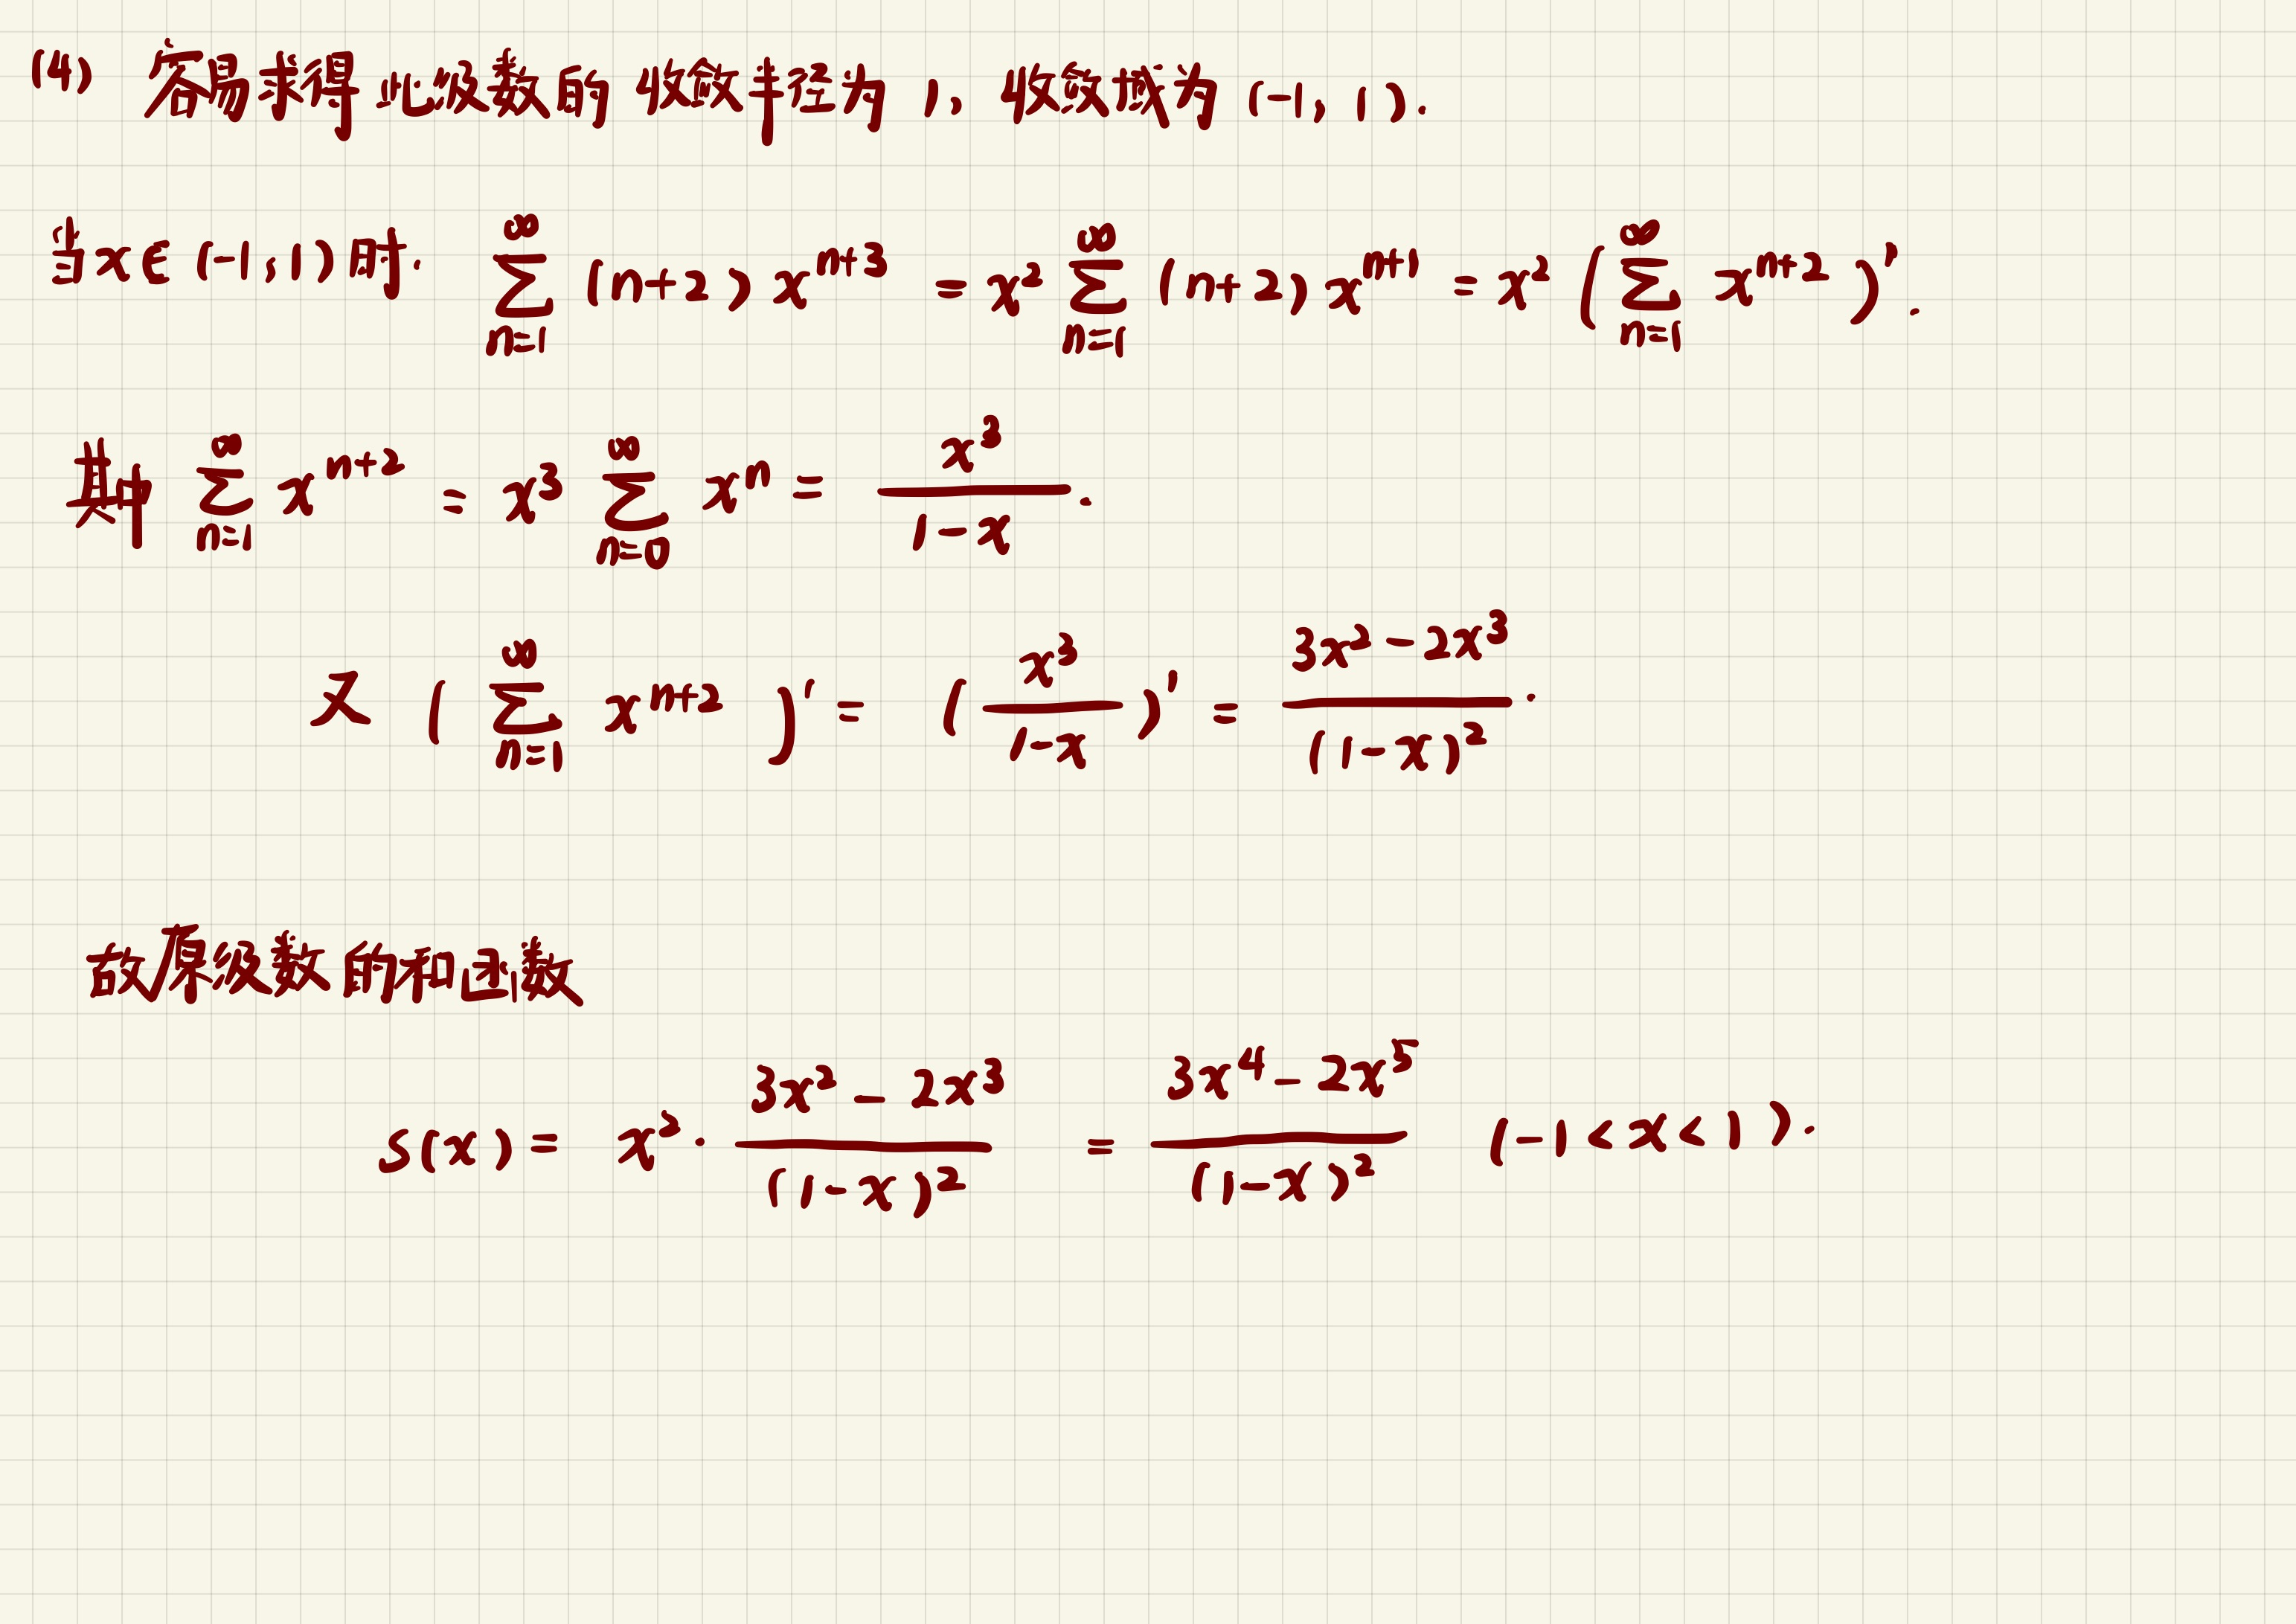 (4) 容易求得此级数的收敛半径为 1, 收敛域为 (-1, 1).
当x∈(-1,1)时. ∑_{n=1}^{∞} (n+2) x^{n+3} = x^2 ∑_{n=1}^{∞} (n+2) x^{n+1} = x^2 ( ∑_{n=1}^{∞} x^{n+2} )'.
其中 ∑_{n=1}^{∞} x^{n+2} = x^3 ∑_{n=0}^{∞} x^n = \frac{x^3}{1-x}.
又 ( ∑_{n=1}^{∞} x^{n+2} )' = ( \frac{x^3}{1-x} )' = \frac{3x^2-2x^3}{(1-x)^2}.
故原级数的和函数
s(x) = x^2 · \frac{3x^2-2x^3}{(1-x)^2} = \frac{3x^4-2x^5}{(1-x)^2} (-1<x<1).